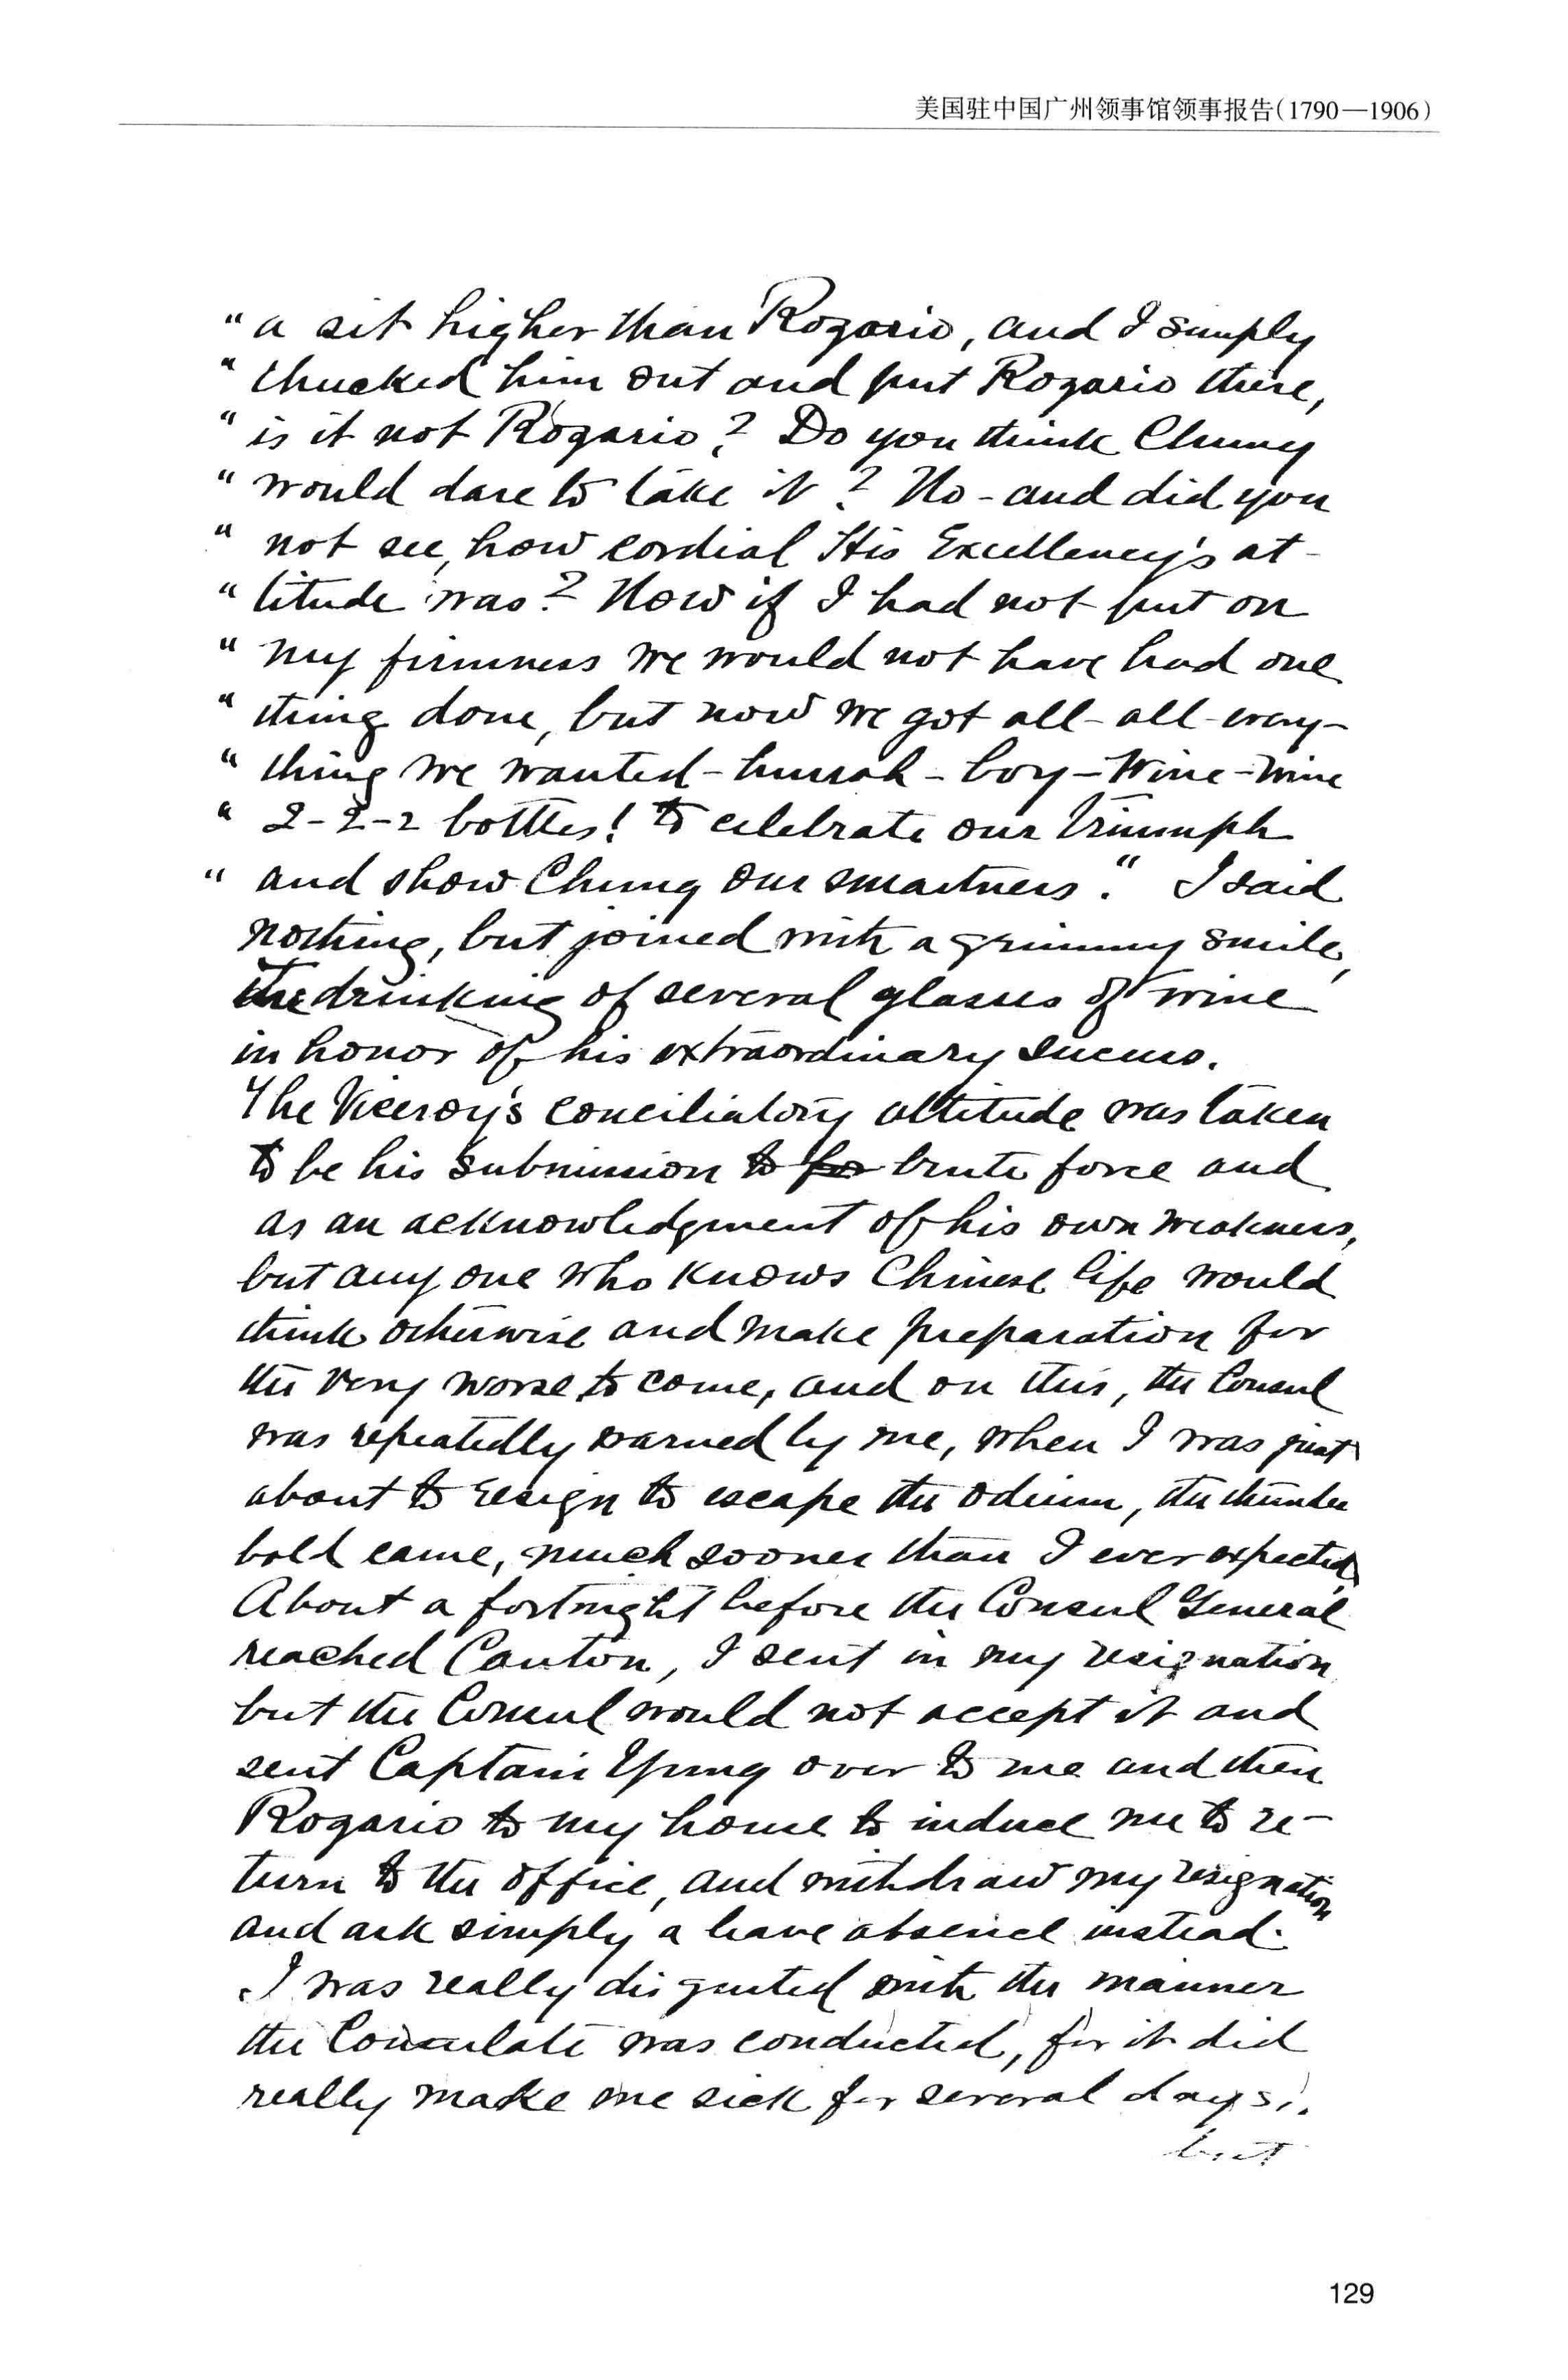 美国驻中国广州领事馆领事报告(1790—1906)
" a sit higher than Rozario, and I simply
" chucked him out and put Rozario there,
" is it not Rozario? Do you think Chung
" would dare to take it? No - and did you
" not see, how cordial His Excellency's at-
" titude was? Now if I had not put on
" my firmness we would not have had one
" thing done, but now we got all - all - every-
" thing we wanted - hurrah - boy - Wine - wine
" 2-2-2 bottles! to celebrate our triumph
" and show Chung our smartness." I said
nothing, but joined with a grimmy smile,
the drinking of several glasses of wine
in honor of his extraordinary success.
The Viceroy's conciliatory attitude was taken
to be his submission to fo brute force and
as an acknowledgment of his own weakness,
but any one who knows Chinese life would
think otherwise and make preparation for
the very worse to come, and on this, the Consul
was repeatedly warned by me, when I was just
about to resign to escape the odium, the thunder
bold came, much sooner than I ever expected
About a fortnight before the Consul General
reached Canton, I sent in my resignation
but the Consul would not accept it and
sent Captain over to me and then
Rozario to my home to induce me to re-
turn to the office, and withdraw my resignation
and ask simply a leave absence instead.
I was really disgusted with the manner
the Consulate was conducted, for it did
really make me sick for several days,.
but
129